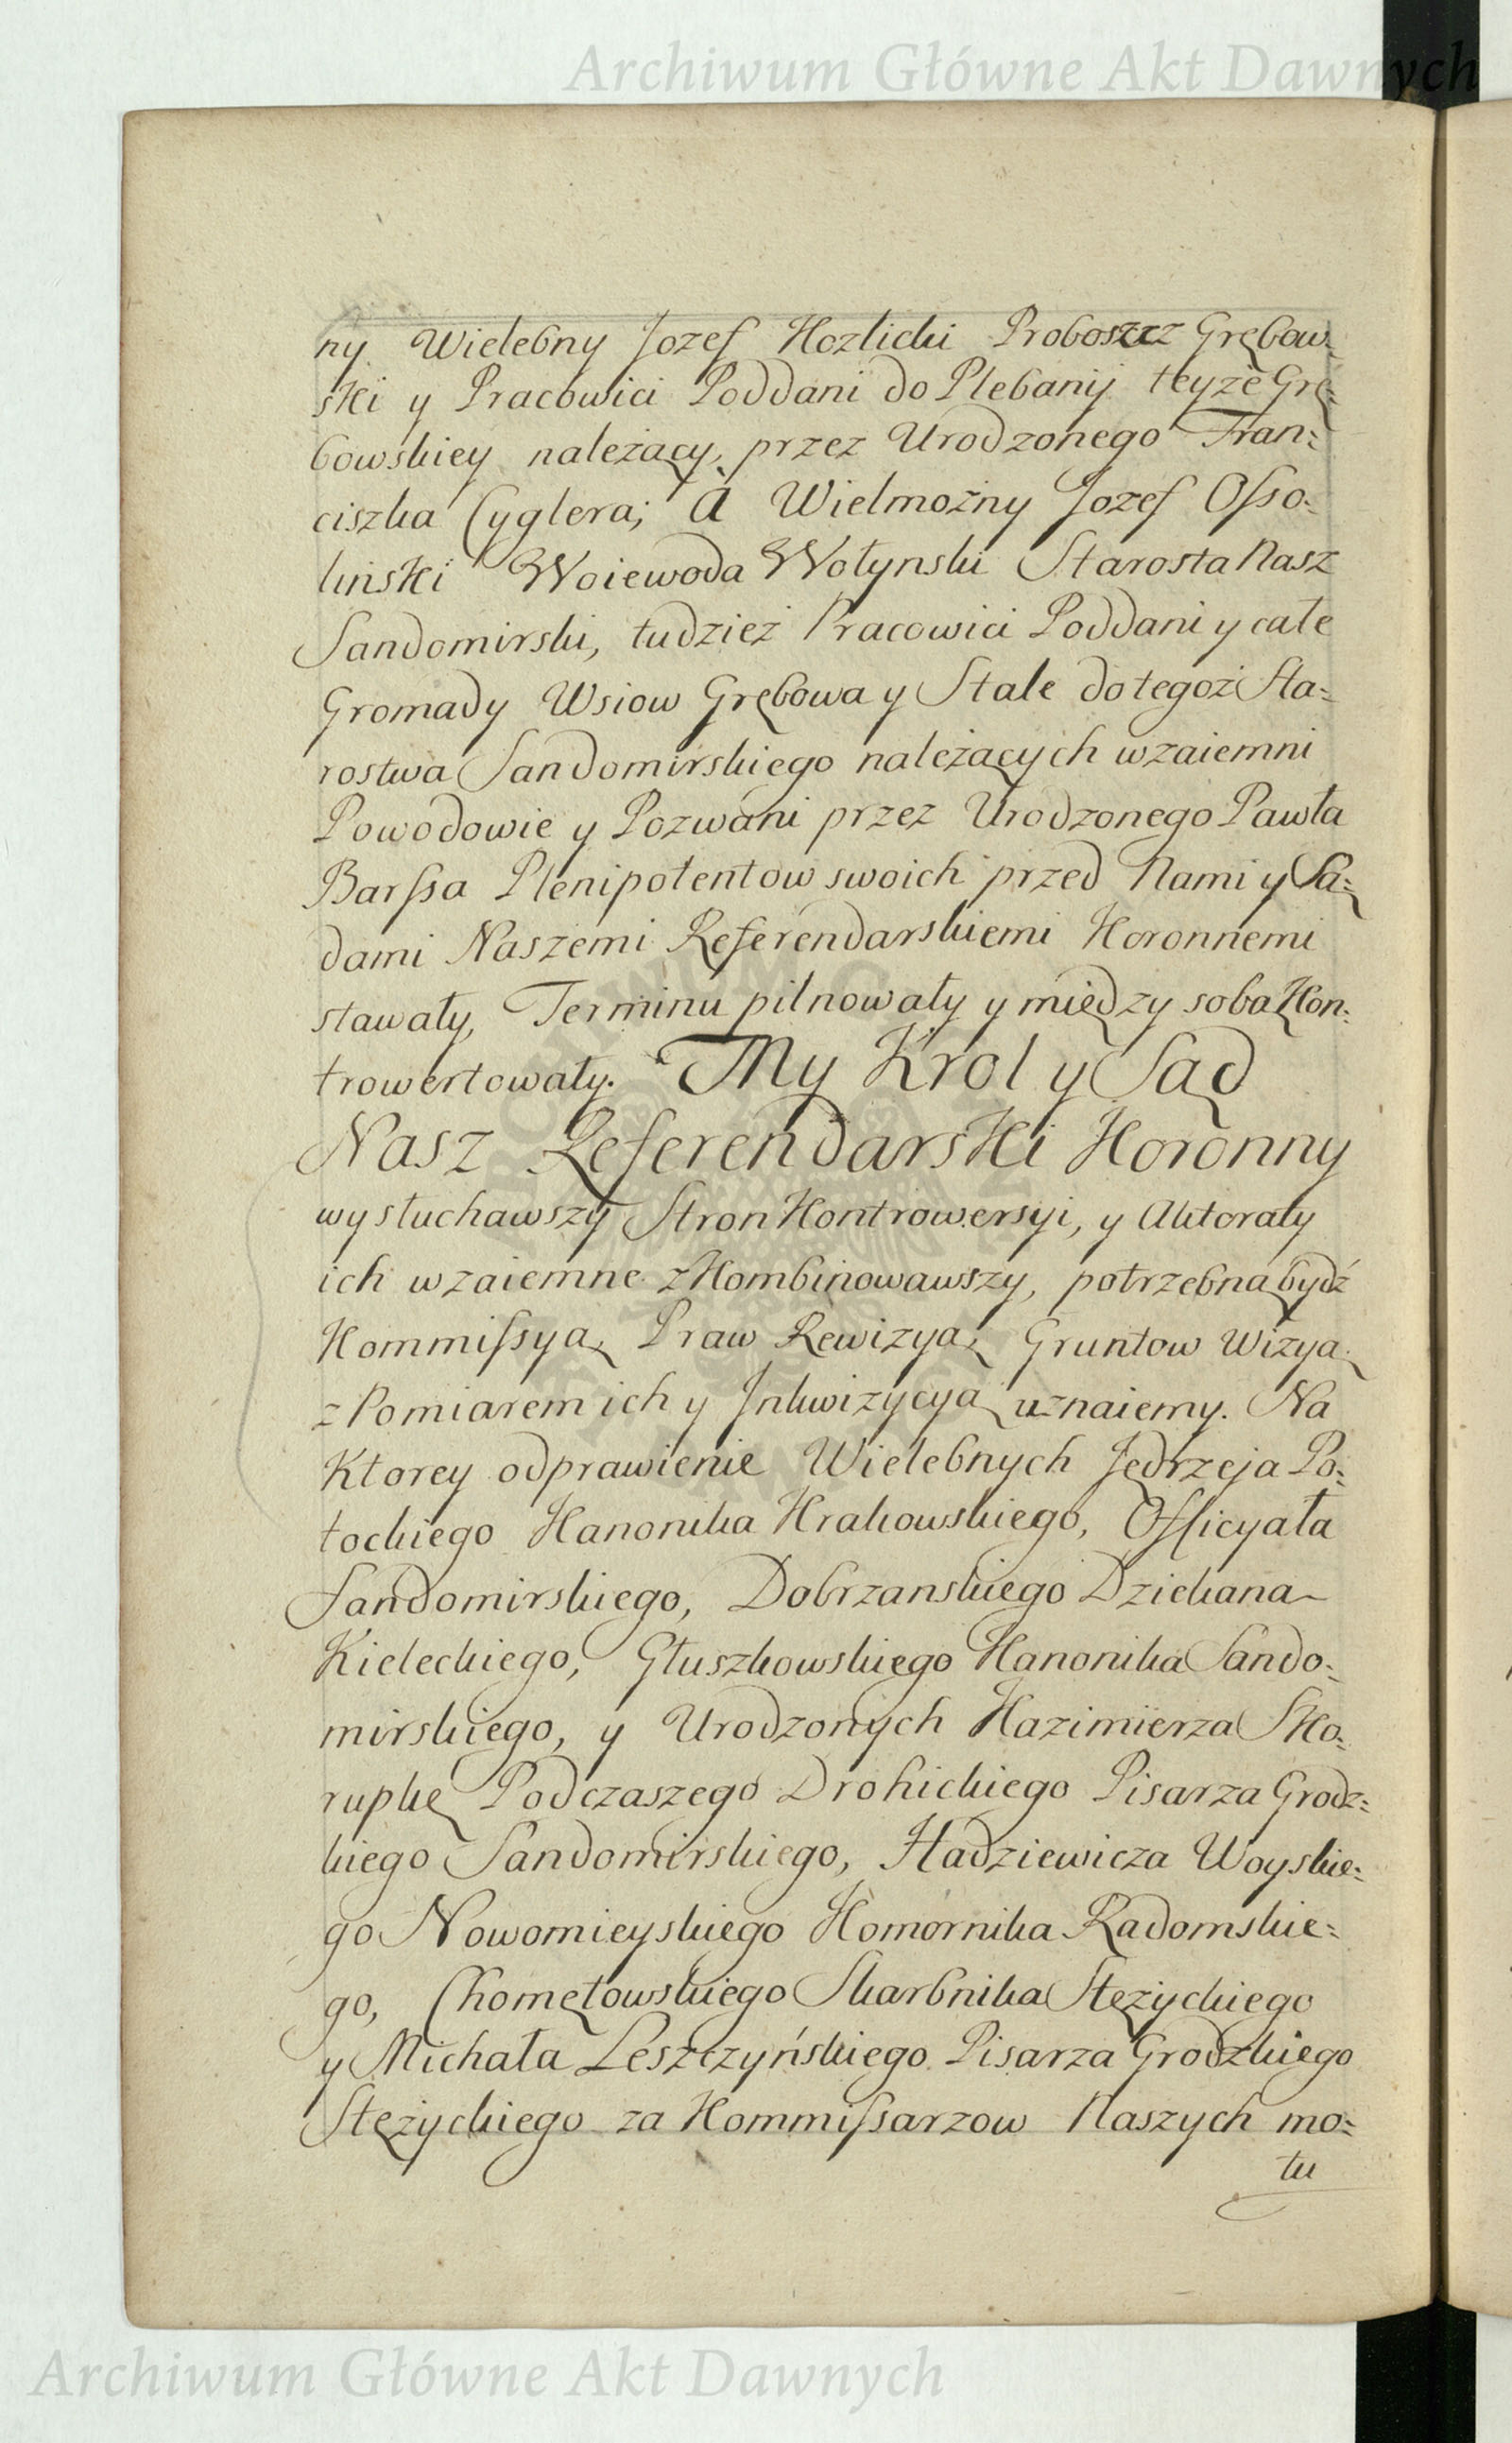 Archiwum Główne Akt Dawnych
ny Wielebny Jozef Kozlicki Proboszcz Grębow=
ski y Pracowici Poddani do Plebanij teyże Grę=
bowskiey należący, przez Urodzonego Fran=
ciszka Cyglera; à Wielmożny Jozef Osso=
liński Woiewoda Wołynski Starosta Nasz
Sandomirski, tudzież Pracowici Poddani y całe
Gromady Wsiow Grębowa y Stale do tegoż Sta=
rostwa Sandomirskiego należących wzaiemni
Powodowie y Pozwani przez Urodzonego Pawła
Barssa Plenipotentow swoich przed Nami y Są=
dami Naszemi Referendarskiemi Koronnemi
stawały, Terminu pilnowały y między sobą Kon=
trowertowały. My Krol y Sąd
Nasz Referendarski Koronny
wysłuchawszy Stron Kontrowersyi, y Aktoraty
ich wzaiemne zKombinowawszy, potrzebną bydź
Kommissyą, Praw Rewizyą, Gruntow Wizyą
z Pomiarem ich y Inkwizycyą uznaiemy. Na
Ktorey odprawienie Wielebnych Jędrzeja Po=
tockiego Kanonika Krakowskiego, Officyała
Sandomirskiego, Dobrzanskiego Dziekana
Kieleckiego, Głuszkowskiego Kanonika Sando=
mirskiego, y Urodzonych Kazimierza Sko=
rupkę Podczaszego Drohickiego Pisarza Grodz=
kiego Sandomirskiego, Kadziewicza Woyskie=
go Nowomieyskiego Komornika Radomskie=
go, Chomętowskiego Skarbnika Stężyckiego
y Michała Leszczyńskiego Pisarza Grodzkiego
Stężyckiego za Kommissarzow Naszych mo=
tu
Archiwum Główne Akt Dawnych